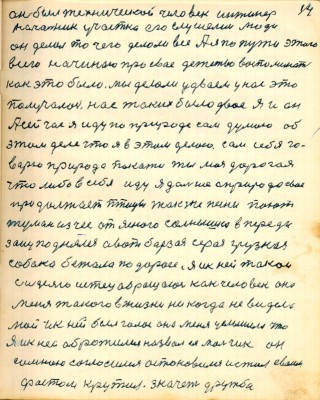 14
он был технической человек инженер
начатник участка его слушали люди
он делал то чего делом все А я по пути этого
всего начинаю про свае детство воспоминать
как это было. мы делом удваем у нас это
получалось, нас таких было двое я и он
А сейчас я иду по природе сам думаю об
этом деле что я в этом делаю. сам себя го-
варю природа покажи ты моя дорогая
что либо в себя иду я дальше а природа свае
продолжает птицы также пени поют
туман исчез от ясного солнышка впереди
заяц поднялся а вот барзая серая грузная
собака бежала по дороге, Я ик ней таком
сидело иетец обращался как человек она
меня такого в жизни не когда не видела
мой ик ней был голос она меня услышела что
Я ик нее оброжился назвал ее мальчик он
самною согласился остоновился и стал своим
фостом крутил. значет дружба